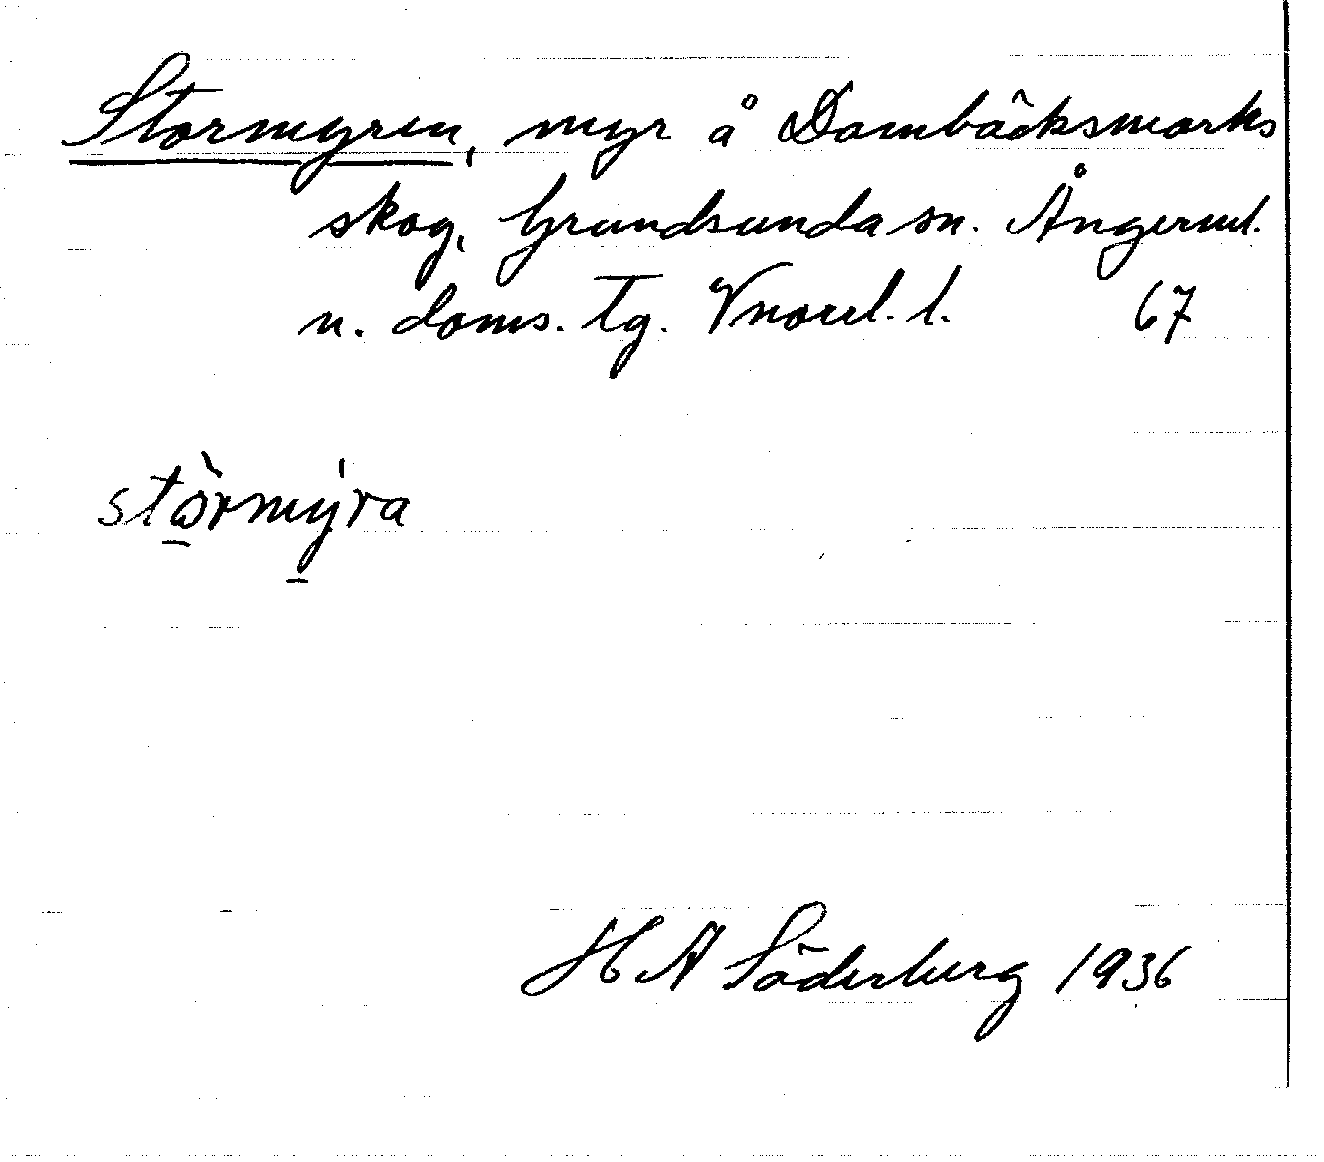 Stormyren, myr å Dombäcksmarks
skog, Grundsunda sn. Ångerml.
n. doms. tg. Vnorrl. l. 67
stòrmýra
H A Söderberg 1936